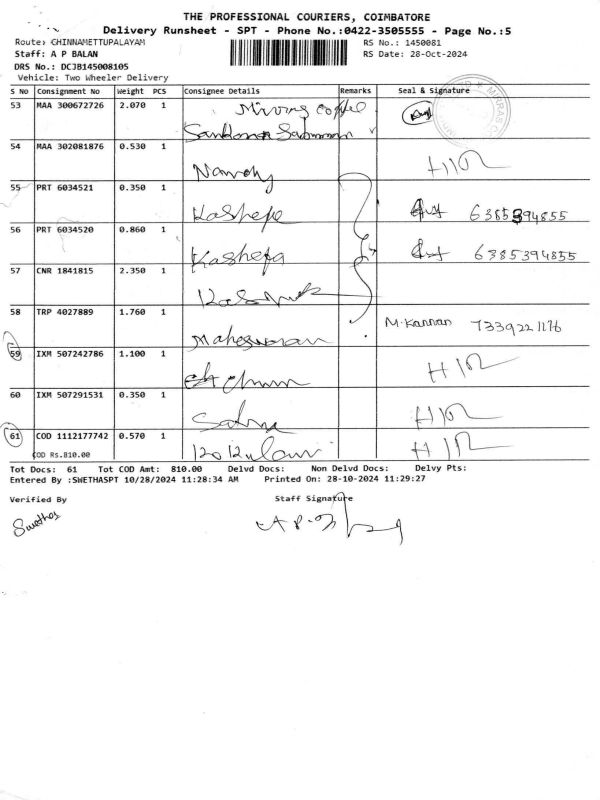 THE PROFESSIONAL COURIERS, COIMBATORE
Delivery Runsheet - SPT - Phone No.:0422-3505555 - Page No.:5
Route: CHINNAMETTUPALAYAM RS No.: 1450081
Staff: A P BALAN RS Date: 28-Oct-2024
DRS No.: DCJB145008105
Vehicle: Two Wheeler Delivery
S No Consignment No Weight PCS Consignee Details Remarks Seal & Signature
53 MAA 300672726 2.070 1
54 MAA 302081876 0.530 1
55 PRT 6034521 0.350 1 6385394855
56 PRT 6034520 0.860 1 Kashefa 6385394855
57 CNR 1841815 2.350 1
58 TRP 4027889 1.760 1 Maheswaran M.Kannan 7339221176
59 IXM 507242786 1.100 1
60 IXM 507291531 0.350 1
61 COD 1112177742 0.570 1
COD Rs.810.00
Tot Docs: 61 Tot COD Amt: 810.00 Delvd Docs: Non Delvd Docs: Delvy Pts:
Entered By :SWETHASPT 10/28/2024 11:28:34 AM Printed On: 28-10-2024 11:29:27
Verified By Staff Signature